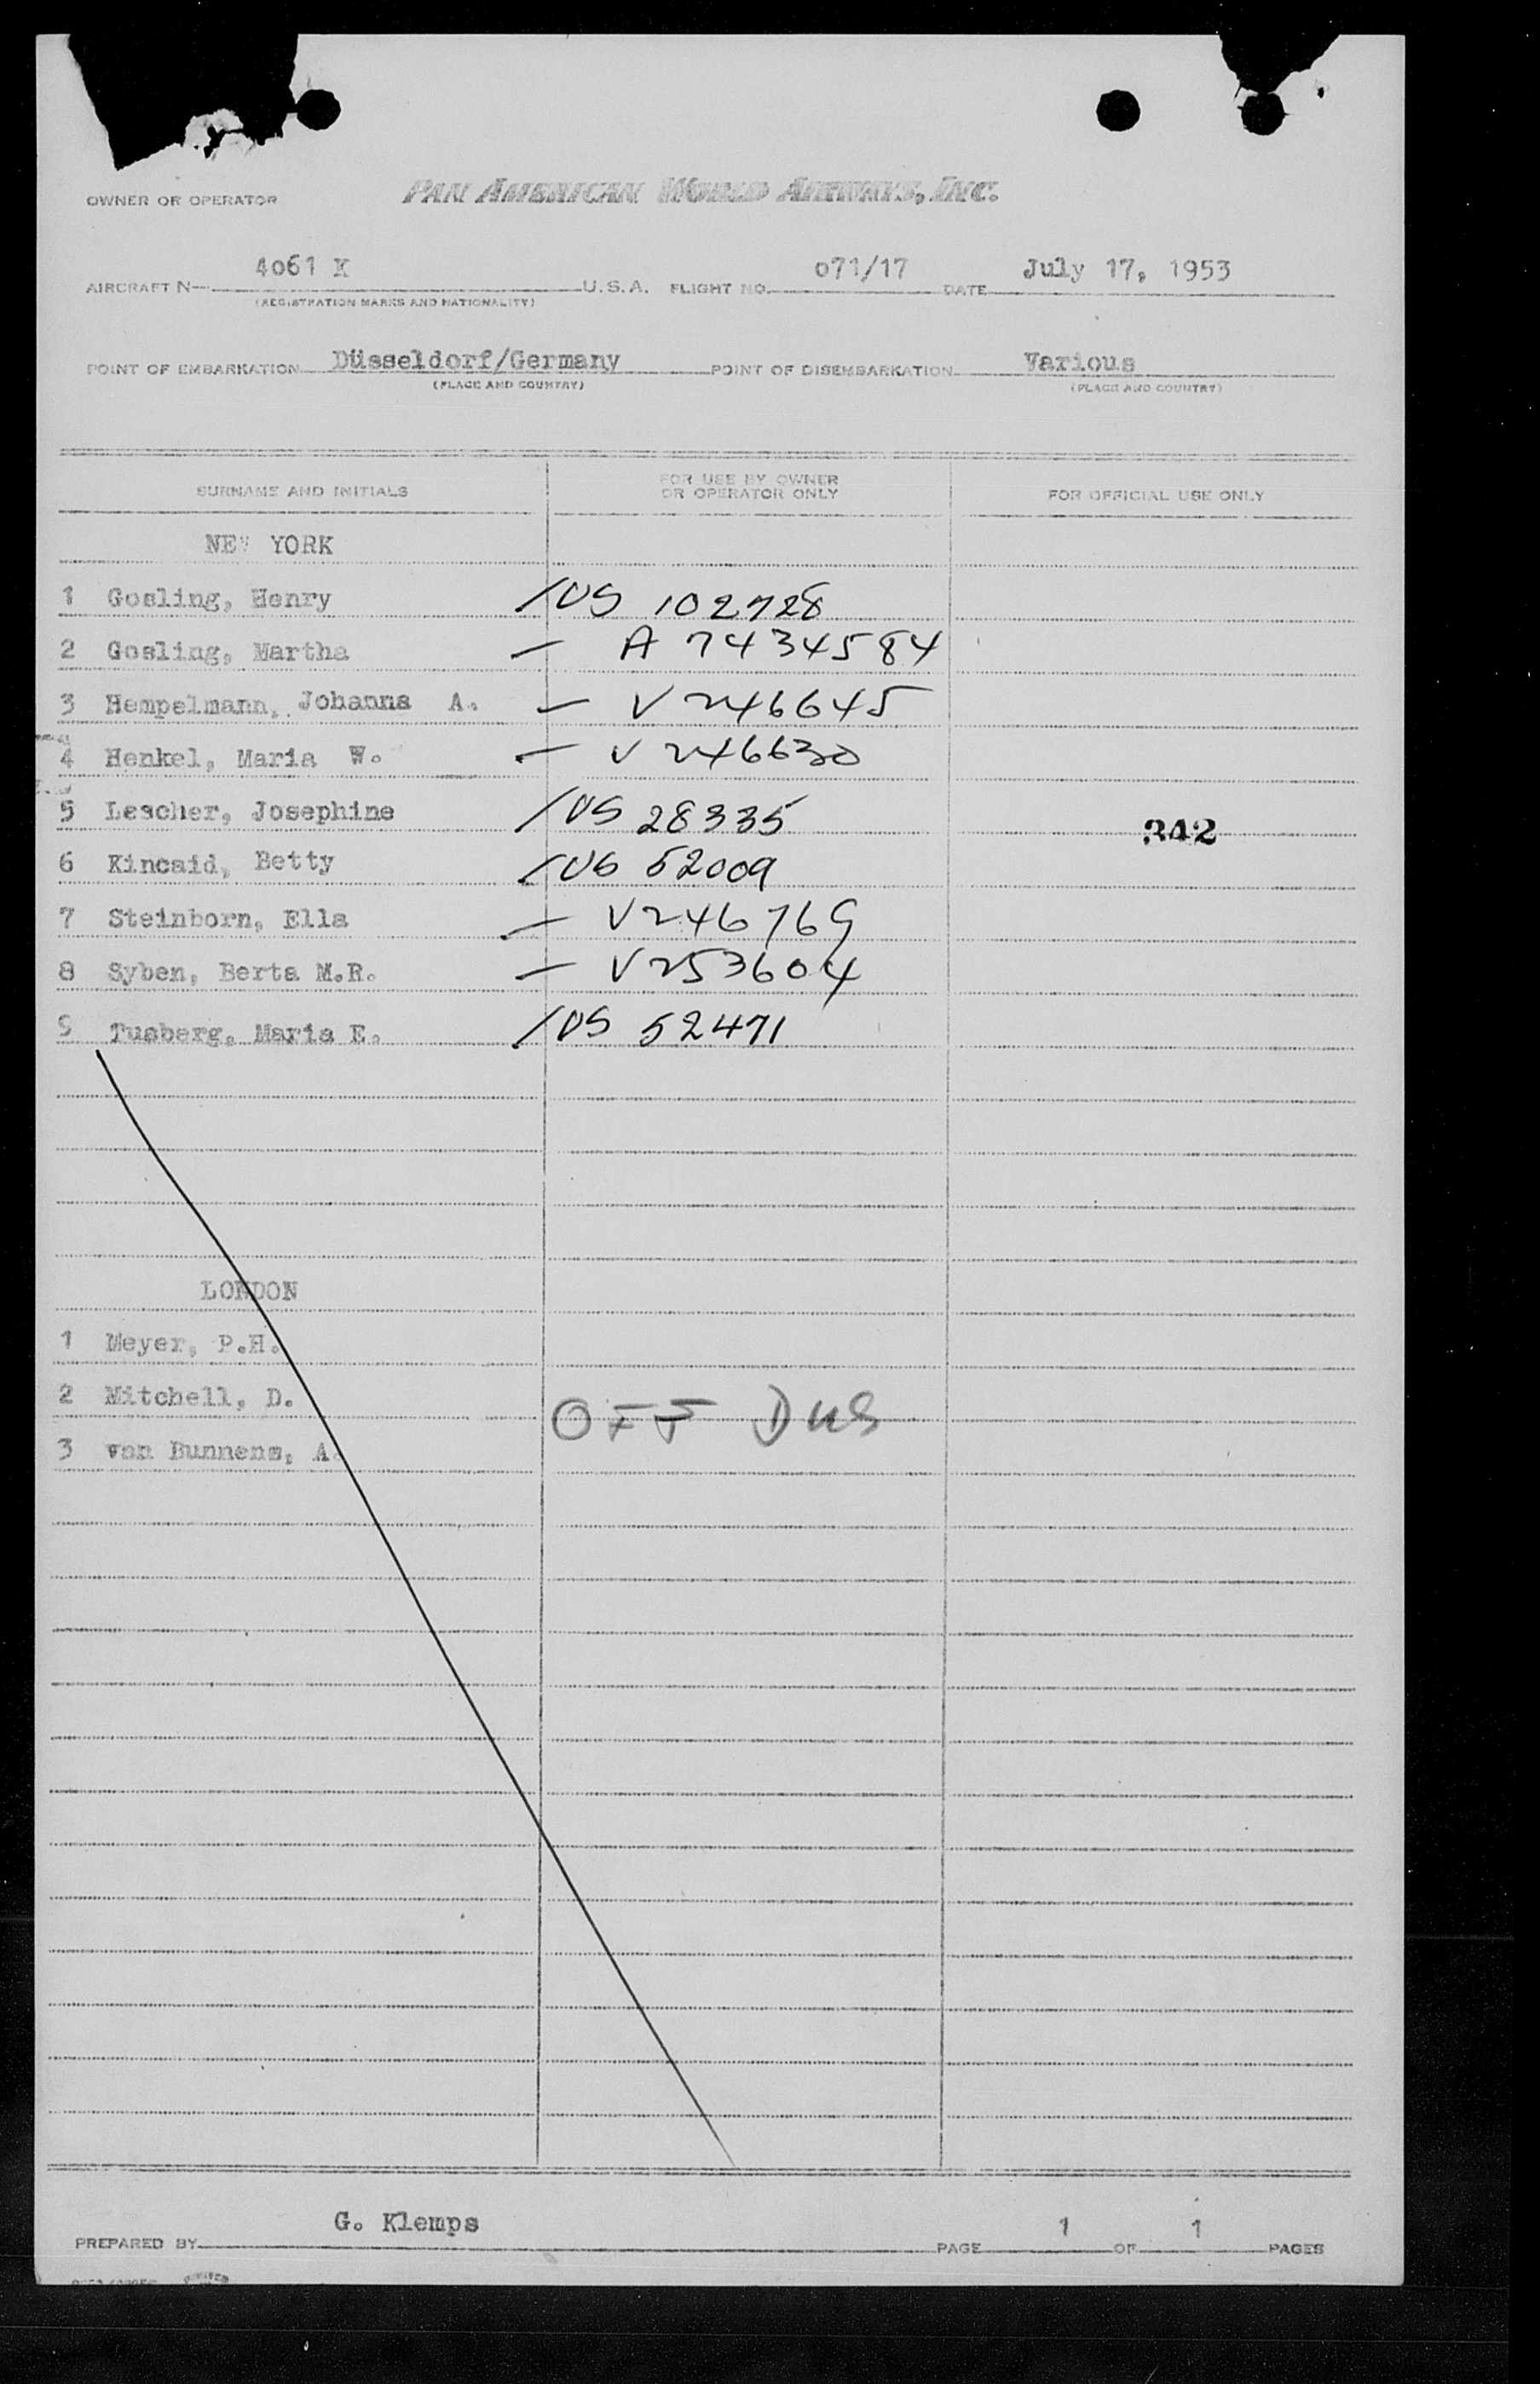 OWNER OR OPERATOR PAN AMERICAN WORLD AIRWAYS, INC.
AIRCRAFT N— 4o61 K U.S.A. FLIGHT NO. o71/17 DATE July 17, 1953
(REGISTRATION MARKS AND NATIONALITY)
POINT OF EMBARKATION Düsseldorf/Germany POINT OF DISEMBARKATION Various
(PLACE AND COUNTRY) (PLACE AND COUNTRY)
SURNAME AND INITIALS FOR USE BY OWNER OR OPERATOR ONLY FOR OFFICIAL USE ONLY
NEW YORK
1 Gosling, Henry /US 102728
2 Gosling, Martha — A 7434584
3 Hempelmann, Johanna A. — V 246645
4 Henkel, Maria W. — V 246630
5 Lescher, Josephine /US 28335 342
6 Kincaid, Betty /US 52009
7 Steinborn, Ella — V246769
8 Syben, Berta M.R. — V253604
9 Tusberg, Maria E. /US 52471
LONDON
1 Meyer, P.H.
2 Mitchell, D. OFF DUS
3 van Bunnens, A.
PREPARED BY G. Klemps PAGE 1 OF 1 PAGES